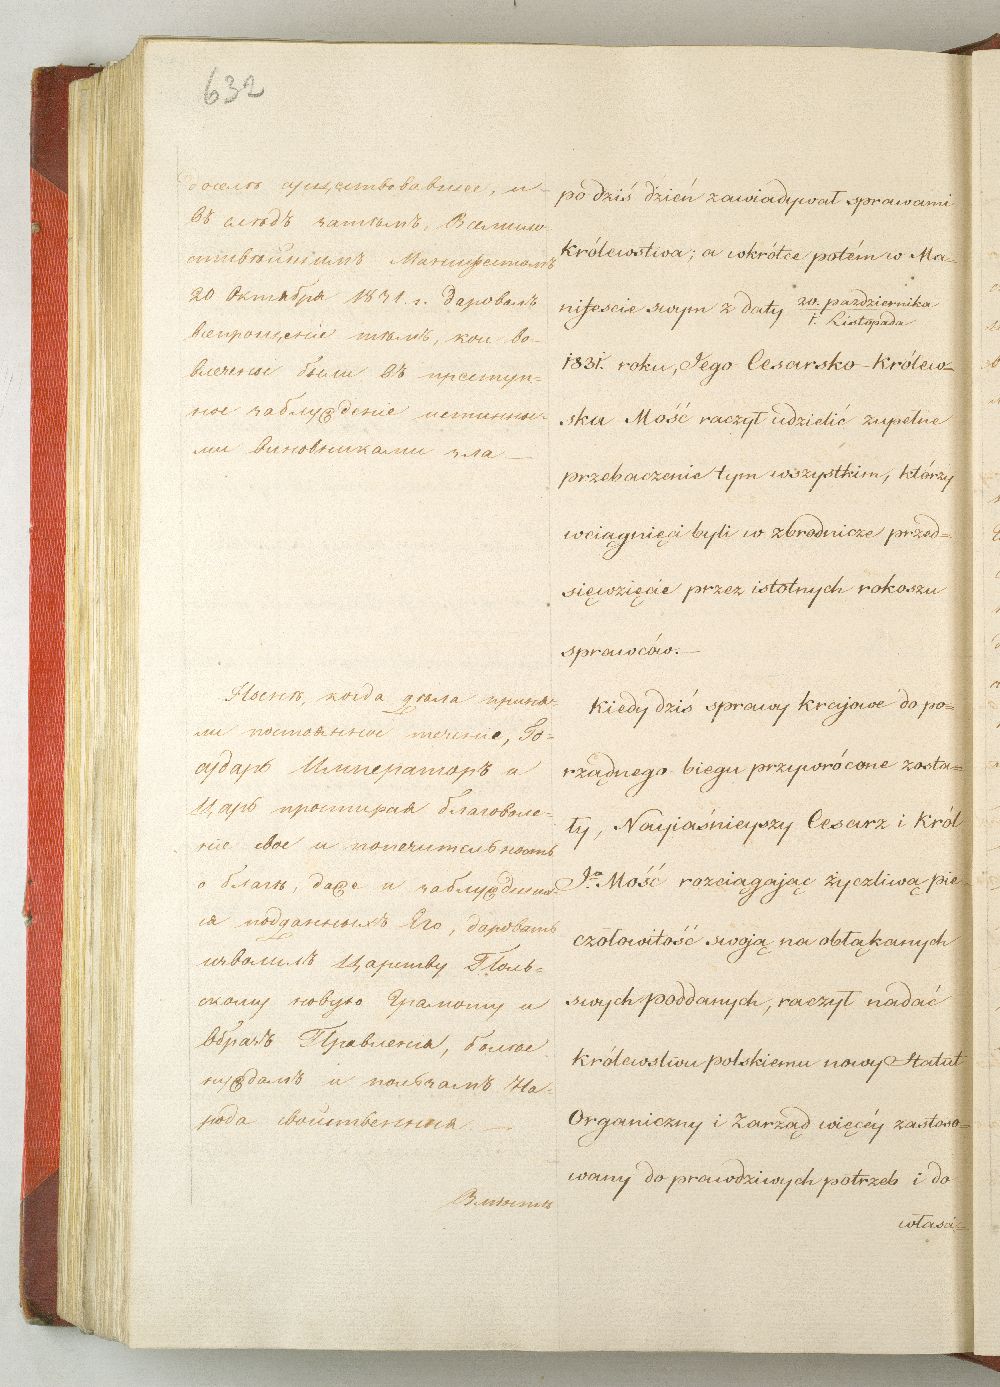 632
доселѣ существовавшее, и
въ слѣдъ затѣмъ, Всемило-
стивѣйшимъ Манифестомъ
20 Октября 1831. г. даровалъ
всепрощеніе тѣмъ, кои во-
влечены были въ преступ-
ное заблужденіе истинны-
ми виновниками зла —
Нынѣ, когда дѣла приня-
ли постоянное теченіе, Го-
сударь Императоръ и
Царь простирая благоволе-
ніе свое и попечительность
о благѣ, даже и заблуждших-
ся подданныхъ Его, даровать
изволилъ Царству Поль-
скому новую Грамоту и
образъ Правленія, болѣе
нуждамъ и пользамъ На-
рода свойственныя. —
Вмѣстѣ
po dziś dzień zawiadywał sprawami
Królewstwa; a wkrótce potém w Ma-
nifescie swym z daty 20. pazdziernika / 1. Listopada
1831. roku, Jego Cesarsko-Królew-
ska Mość raczył udzielić zupełne
przebaczenie tym wszystkim, którzy
wciągnięci byli w zbrodnicze przed=
sięwzięcie przez istotnych rokoszu
sprawców. —
Kiedy dziś sprawy krajowe do po=
rządnego biegu przywrócone zosta-
ły, Nayjaśnieyszy Cesarz i Król
Jo. Mość rozciągając życzliwą pie-
czołowitość swoją na obłąkanych
swych poddanych, raczył nadać
Królewstwu polskiemu nowy Statut
Organiczny i Zarząd więcéy zastoso-
wany do prawdziwych potrzeb i do
właści=